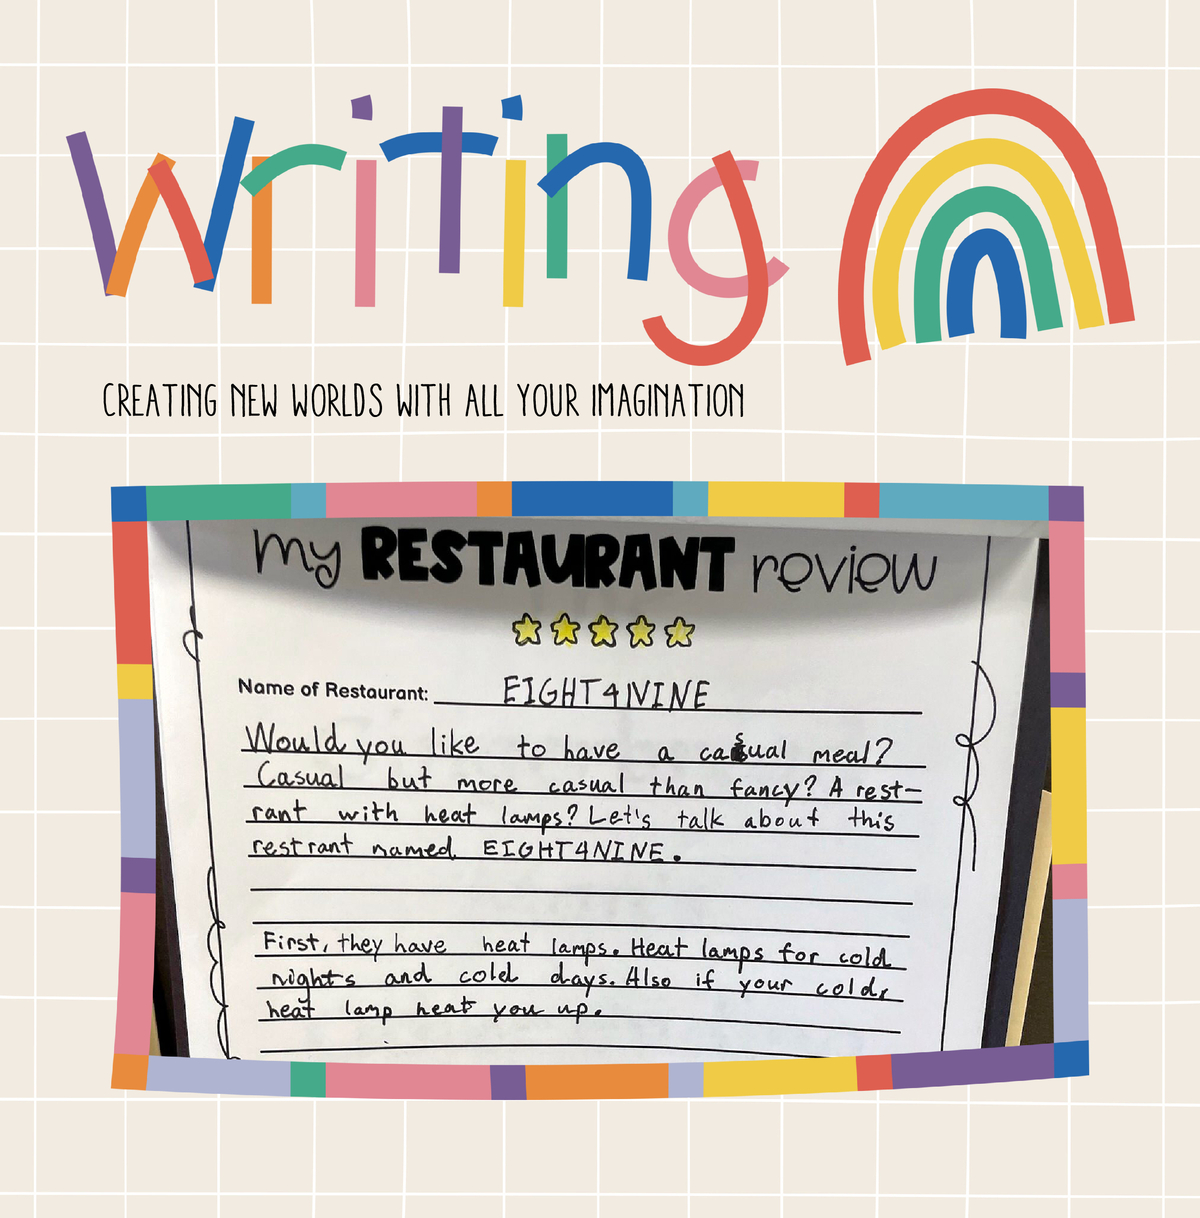 writing
CREATING NEW WORLDS WITH ALL YOUR IMAGINATION
my RESTAURANT review
Name of Restaurant: EIGHT4NINE
Would you like to have a casual meal?
Casual but more casual than fancy? A rest-
rant with heat lamps? Let's talk about this
restrant named EIGHT4NINE.
First, they have heat lamps. Heat lamps for cold
nights and cold days. Also if your cold,
heat lamp heats you up.